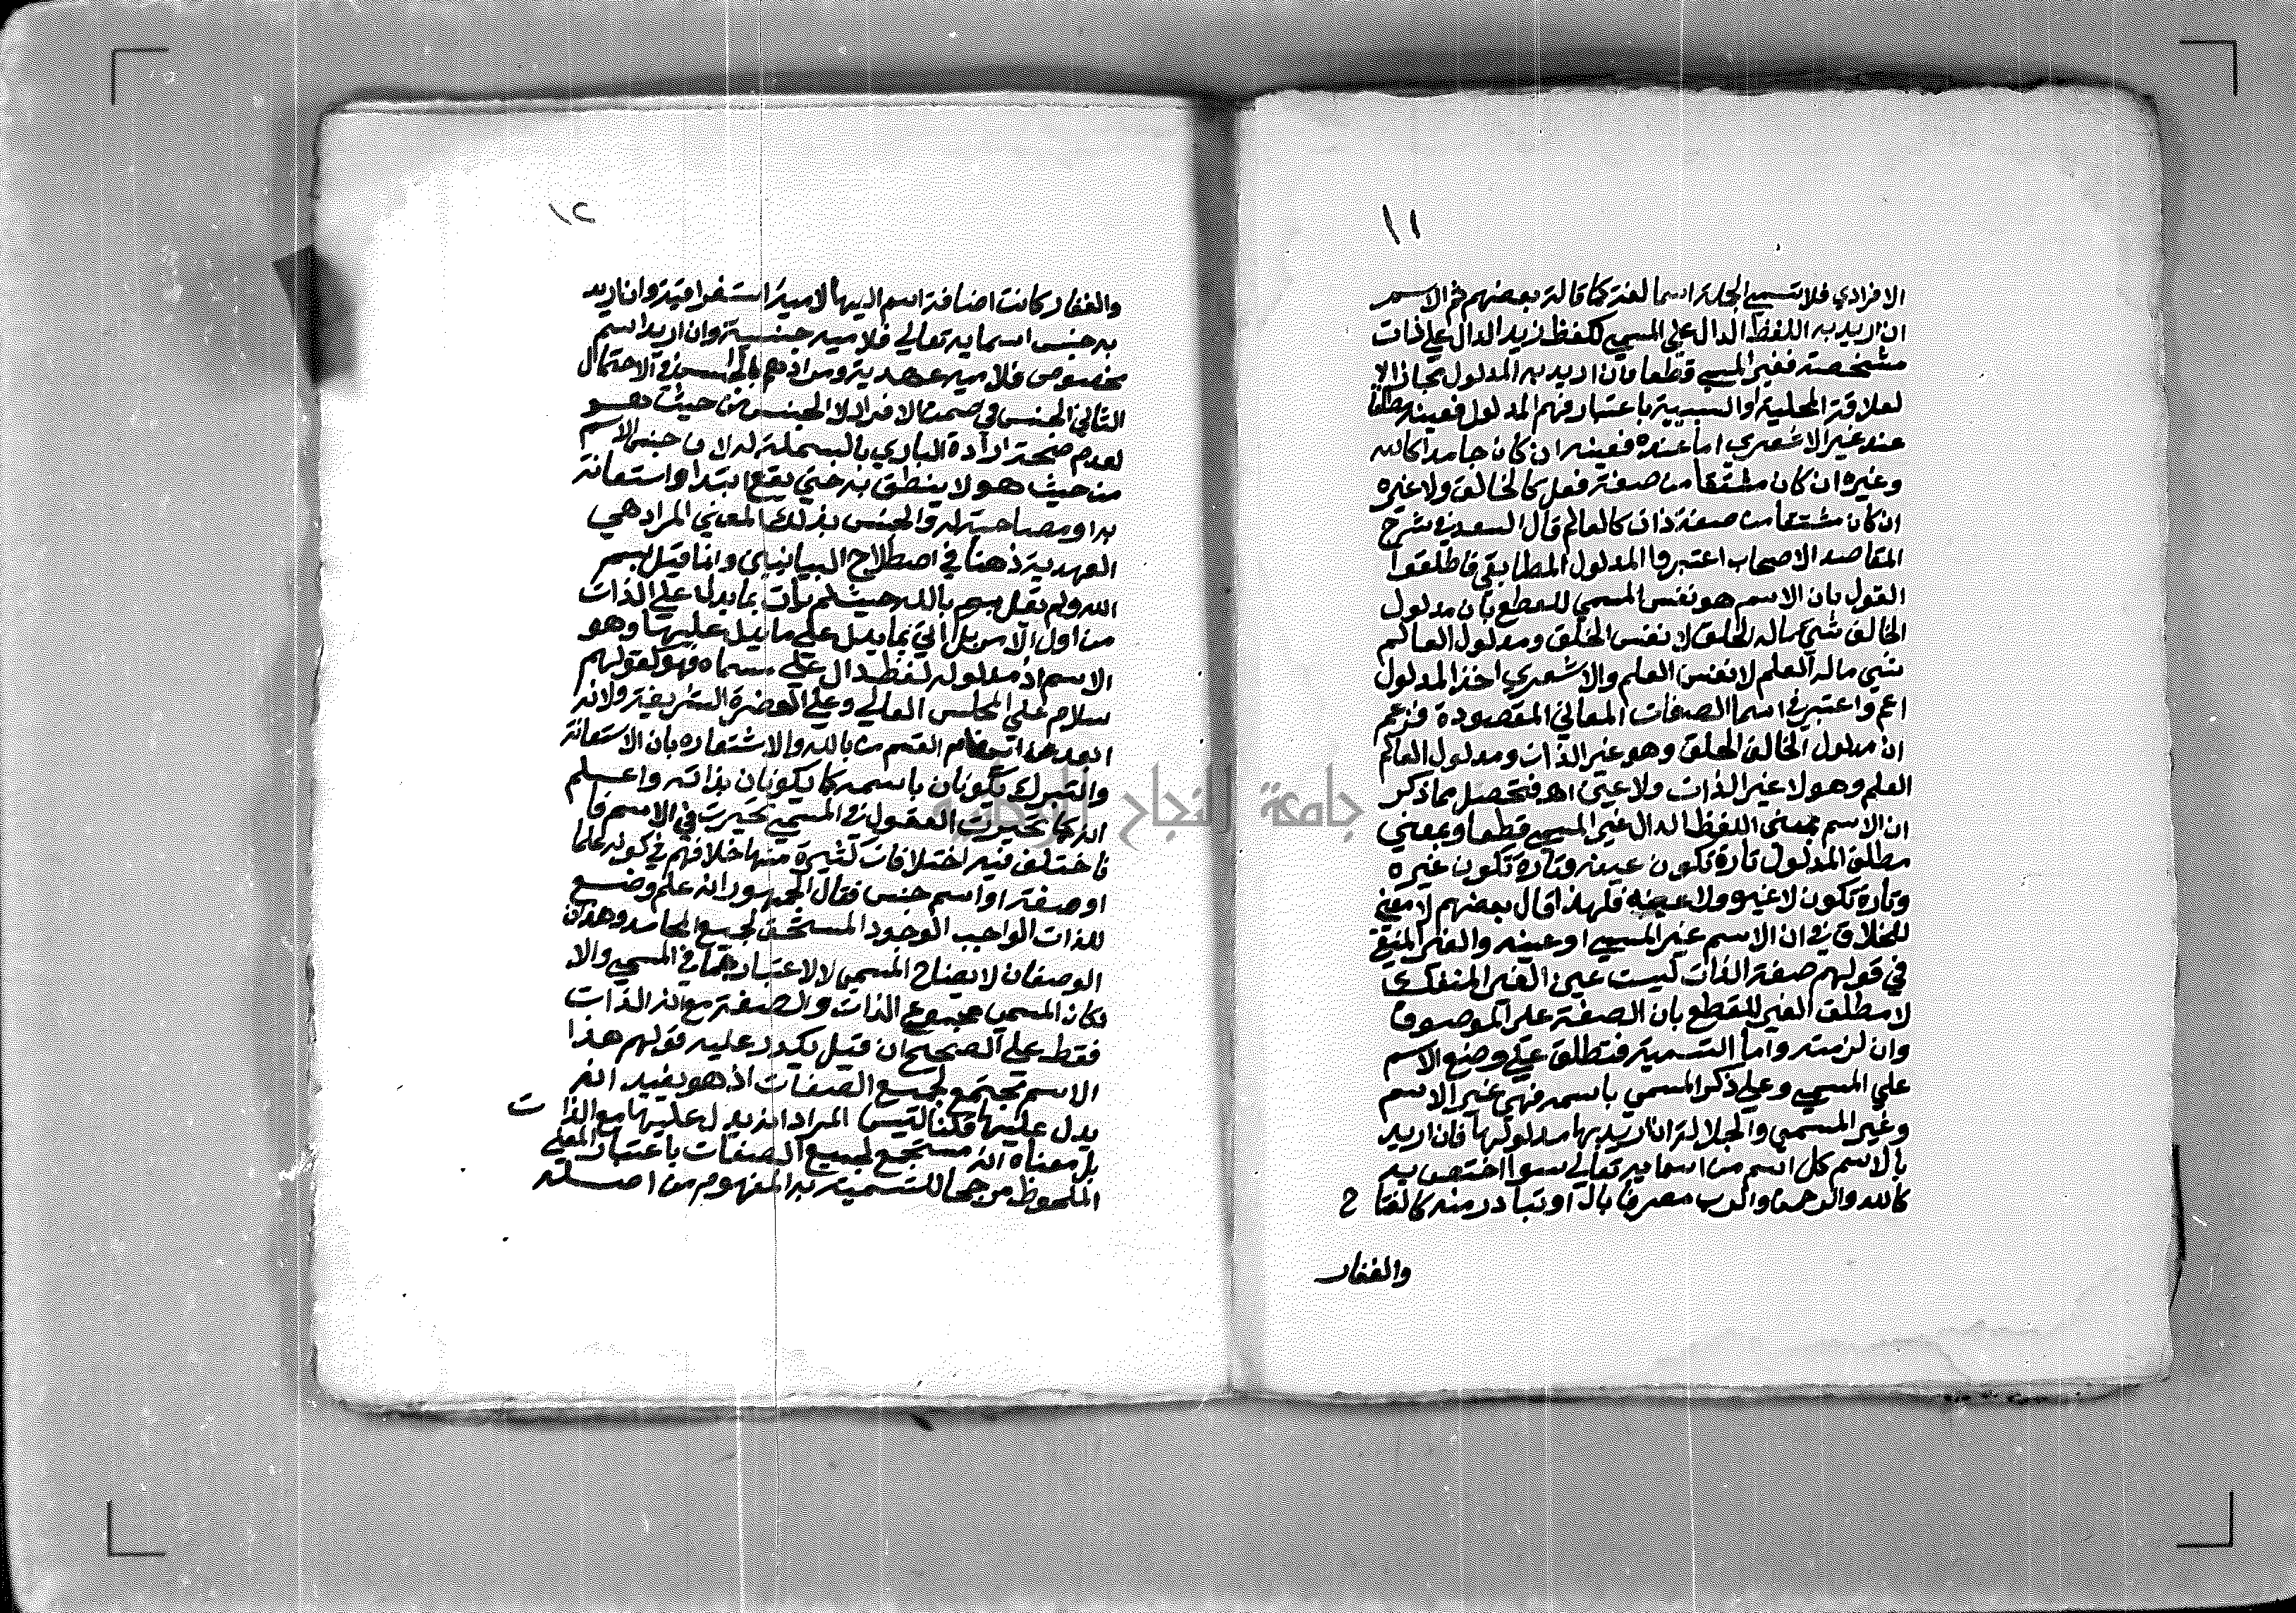 ١١
الافرادي فلا تسمي الجلة اسما لغة كما قاله بعضهم ثم الاسم
ان اريد به اللفظ الدال علي المسمي كلفظ زيد الدال علي ذات
مشخصة فغير المسمي قطعا وان اريد به المدلول مجازا لا
لعلاقة المحلية او السببية باعتبار فهم المدلول فعينه مطلقا
عند غير الاشعري اما عنده فعينه ان كان جامدا كالله
وغيره ان كان مشتقا من صفة فعل كالخالق ولا غيره
ان كان مشتقا من صفة ذات كالعالم قال السعد في شرح
المقاصد الاصحاب اعتبروا المدلول المطابقي فاطلقوا
القول بان الاسم هو نفس المسمي للقطع بان مدلول
الخالق شي ماله الخلق لا نفس الخلق ومدلول العالم
شي ماله العلم لا نفس العلم والاشعري اخذ المدلول
اعم واعتبر في اسما الصفات المعاني المقصودة فزعم
ان مدلول الخالق الخلق وهو غير الذات ومدلول العالم
العلم وهو لا غير الذات ولا عين اهـ فتحصل مما ذكر
ان الاسم بمعني اللفظ الدال غير المسمي قطعا وبمعني
مطلق المدلول تارة تكون عينه وتارة تكون غيره
وتارة تكون لا غيره ولا عينه فلهذا قال بعضهم لا معني
للخلاف في ان الاسم غير المسمي او عينه والغير المنفي
في قولهم صفة الذات ليست عين الغير المنفك
لا مطلق الغير للقطع بان الصفة غير الموصوف
وان لزمته واما التسمية فتطلق علي وضع الاسم
علي المسمي وعلي ذكر المسمي باسمه فهي غير الاسم
وغير المسمي والجلالة ان اريد بها مدلولها فان اريد
بالاسم كل اسم من اسمايه تعالي سوا اختص به
كالله والرحمن والرب معرفا بال او تبادر منه كالفتاح
والغفار
١٢
والغفار كانت اضافة اسم اليها لامية استغراقية وان اريد
به جنس اسمايه تعالي فلامية جنسية وان اريد اسم
مخصوص فلامية عهدية ومرادهم بالجنس في الاحتمال
الثاني الجنس في ضمن الافراد لا الجنس من حيث هو
لعدم صحة ارادة الباري بالبسملة له لان جنس الاسم
من حيث هو لا ينطق به حتي يقع ابتدا واستعانة
به او مصاحبة له والجنس بذلك المعني المراد هي
العهدية ذهنا في اصطلاح البيانيين وانما قيل بسم
الله ولم يقل بسم بالله حيث لم يات بما يدل علي الذات
من اول الامر بل اتي بما يدل علي ما يدل عليها وهو
الاسم اذ مدلوله لفظ دال علي مسماه فهو كقولهم
سلام علي المجلس العالي وعلي الحضرة الشريفة ولانه
ابعد عن ايهام القسم من بالله والاشتعاره بان الاستعانة
والتبرك يكونان باسمه كما يكونان بذاته واعلم
انه كما تحيرت العقول في المسمي تحيرت في الاسم فا
فاختلف فيه اختلافات كثيرة منها خلافهم في كونه علما
او صفة او اسم جنس فقال الجمهور انه علم وضع
للذات الواجب الوجود المستحق لجميع المحامد وهذان
الوصفان لايضاح المسمي لا لاعتبارهما في المسمي والا
فكان المسمي مجموع الذات والصفة مع انه الذات
فقط علي الصحيح ان قيل يكدر عليه قولهم هذا
الاسم مجتمع لجميع الصفات اذ هو يفيد انه
يدل عليها قلنا ليس المراد انه يدل عليها مع الذات
بل معناه انه مستجمع لجميع الصفات باعتبار المعني
الملحوظ مرجحا للتسمية به المفهوم من اصله